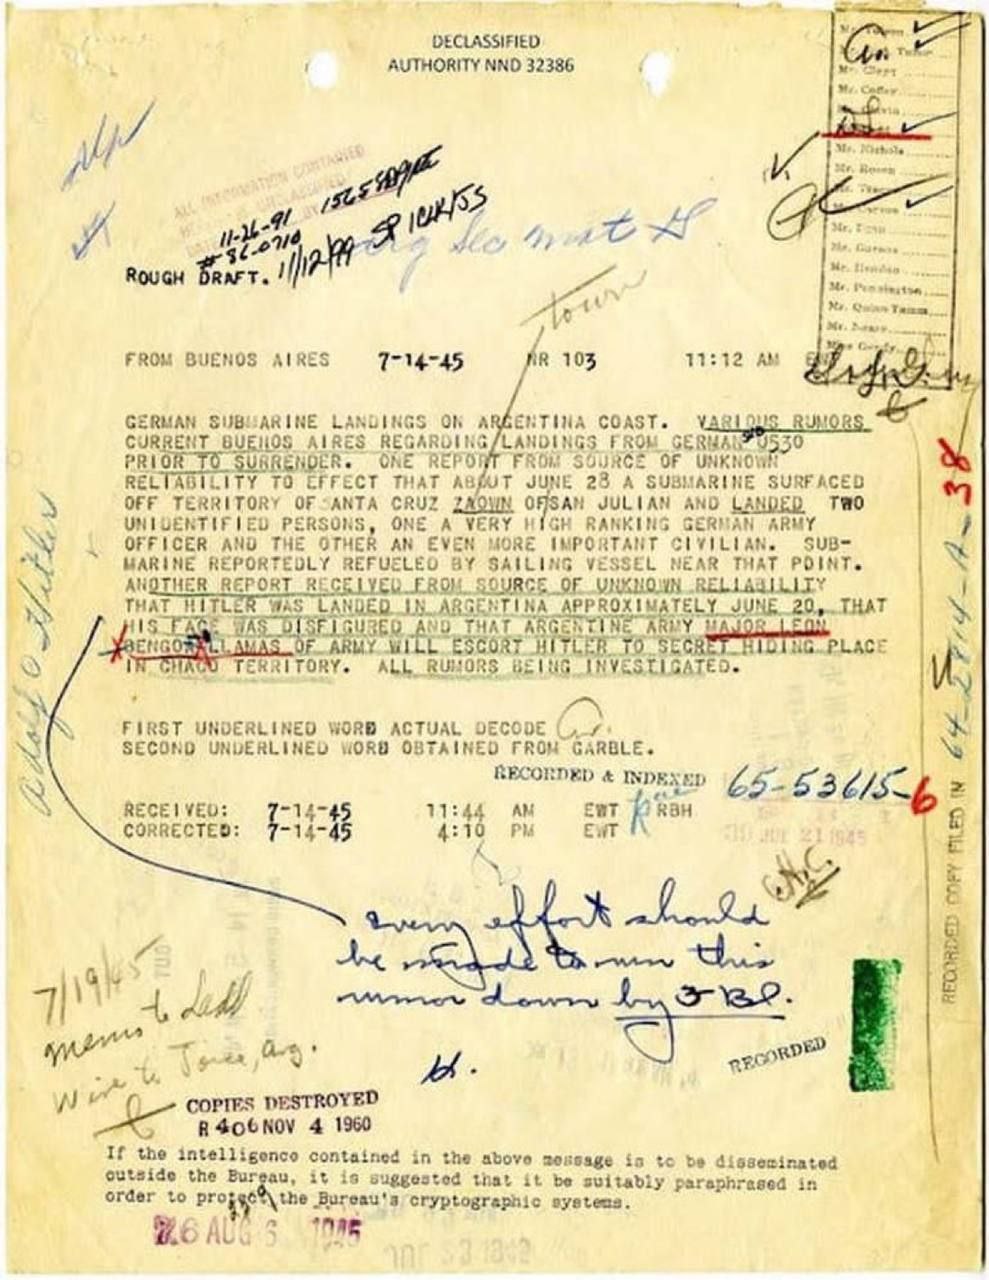 DECLASSIFIED
AUTHORITY NND 32386
Mr. Clegg
Mr. Coffey
Mr. Nichols
Mr. Rosen
Mr. Carson
Mr. Egan
Mr. Hendon
Mr. Pennington
Mr. Quinn Tamm
Mr. Nease
Miss Gandy
ALL INFORMATION CONTAINED
11-26-91
#86-0710
11/12/99
ROUGH DRAFT.
Town
FROM BUENOS AIRES 7-14-45 NR 103 11:12 AM
GERMAN SUBMARINE LANDINGS ON ARGENTINA COAST. VARIOUS RUMORS
CURRENT BUENOS AIRES REGARDING LANDINGS FROM GERMAN SUB U530
PRIOR TO SURRENDER. ONE REPORT FROM SOURCE OF UNKNOWN
RELIABILITY TO EFFECT THAT ABOUT JUNE 28 A SUBMARINE SURFACED
OFF TERRITORY OF SANTA CRUZ ZAOWN OF SAN JULIAN AND LANDED TWO
UNIDENTIFIED PERSONS, ONE A VERY HIGH RANKING GERMAN ARMY
OFFICER AND THE OTHER AN EVEN MORE IMPORTANT CIVILIAN. SUB-
MARINE REPORTEDLY REFUELED BY SAILING VESSEL NEAR THAT POINT.
ANOTHER REPORT RECEIVED FROM SOURCE OF UNKNOWN RELIABILITY
THAT HITLER WAS LANDED IN ARGENTINA APPROXIMATELY JUNE 20, THAT
HIS FACE WAS DISFIGURED AND THAT ARGENTINE ARMY MAJOR LEON
BENGOA LLAMAS OF ARMY WILL ESCORT HITLER TO SECRET HIDING PLACE
IN CHACO TERRITORY. ALL RUMORS BEING INVESTIGATED.
Adolf Hitler
FIRST UNDERLINED WORD ACTUAL DECODE
SECOND UNDERLINED WORD OBTAINED FROM GARBLE.
RECORDED & INDEXED 65-53615-6
RECEIVED: 7-14-45 11:44 AM EWT RBH
CORRECTED: 7-14-45 4:10 PM EWT
JUL 21 1945
RECORDED COPY FILED IN 64-2814-A-38
every effort should
be made to run this
rumor down by FBI.
H.
7/19/45
memo to Ladd
Wire to Arg.
RECORDED
COPIES DESTROYED
R 406 NOV 4 1960
If the intelligence contained in the above message is to be disseminated
outside the Bureau, it is suggested that it be suitably paraphrased in
order to protect the Bureau's cryptographic systems.
76 AUG 6 1945